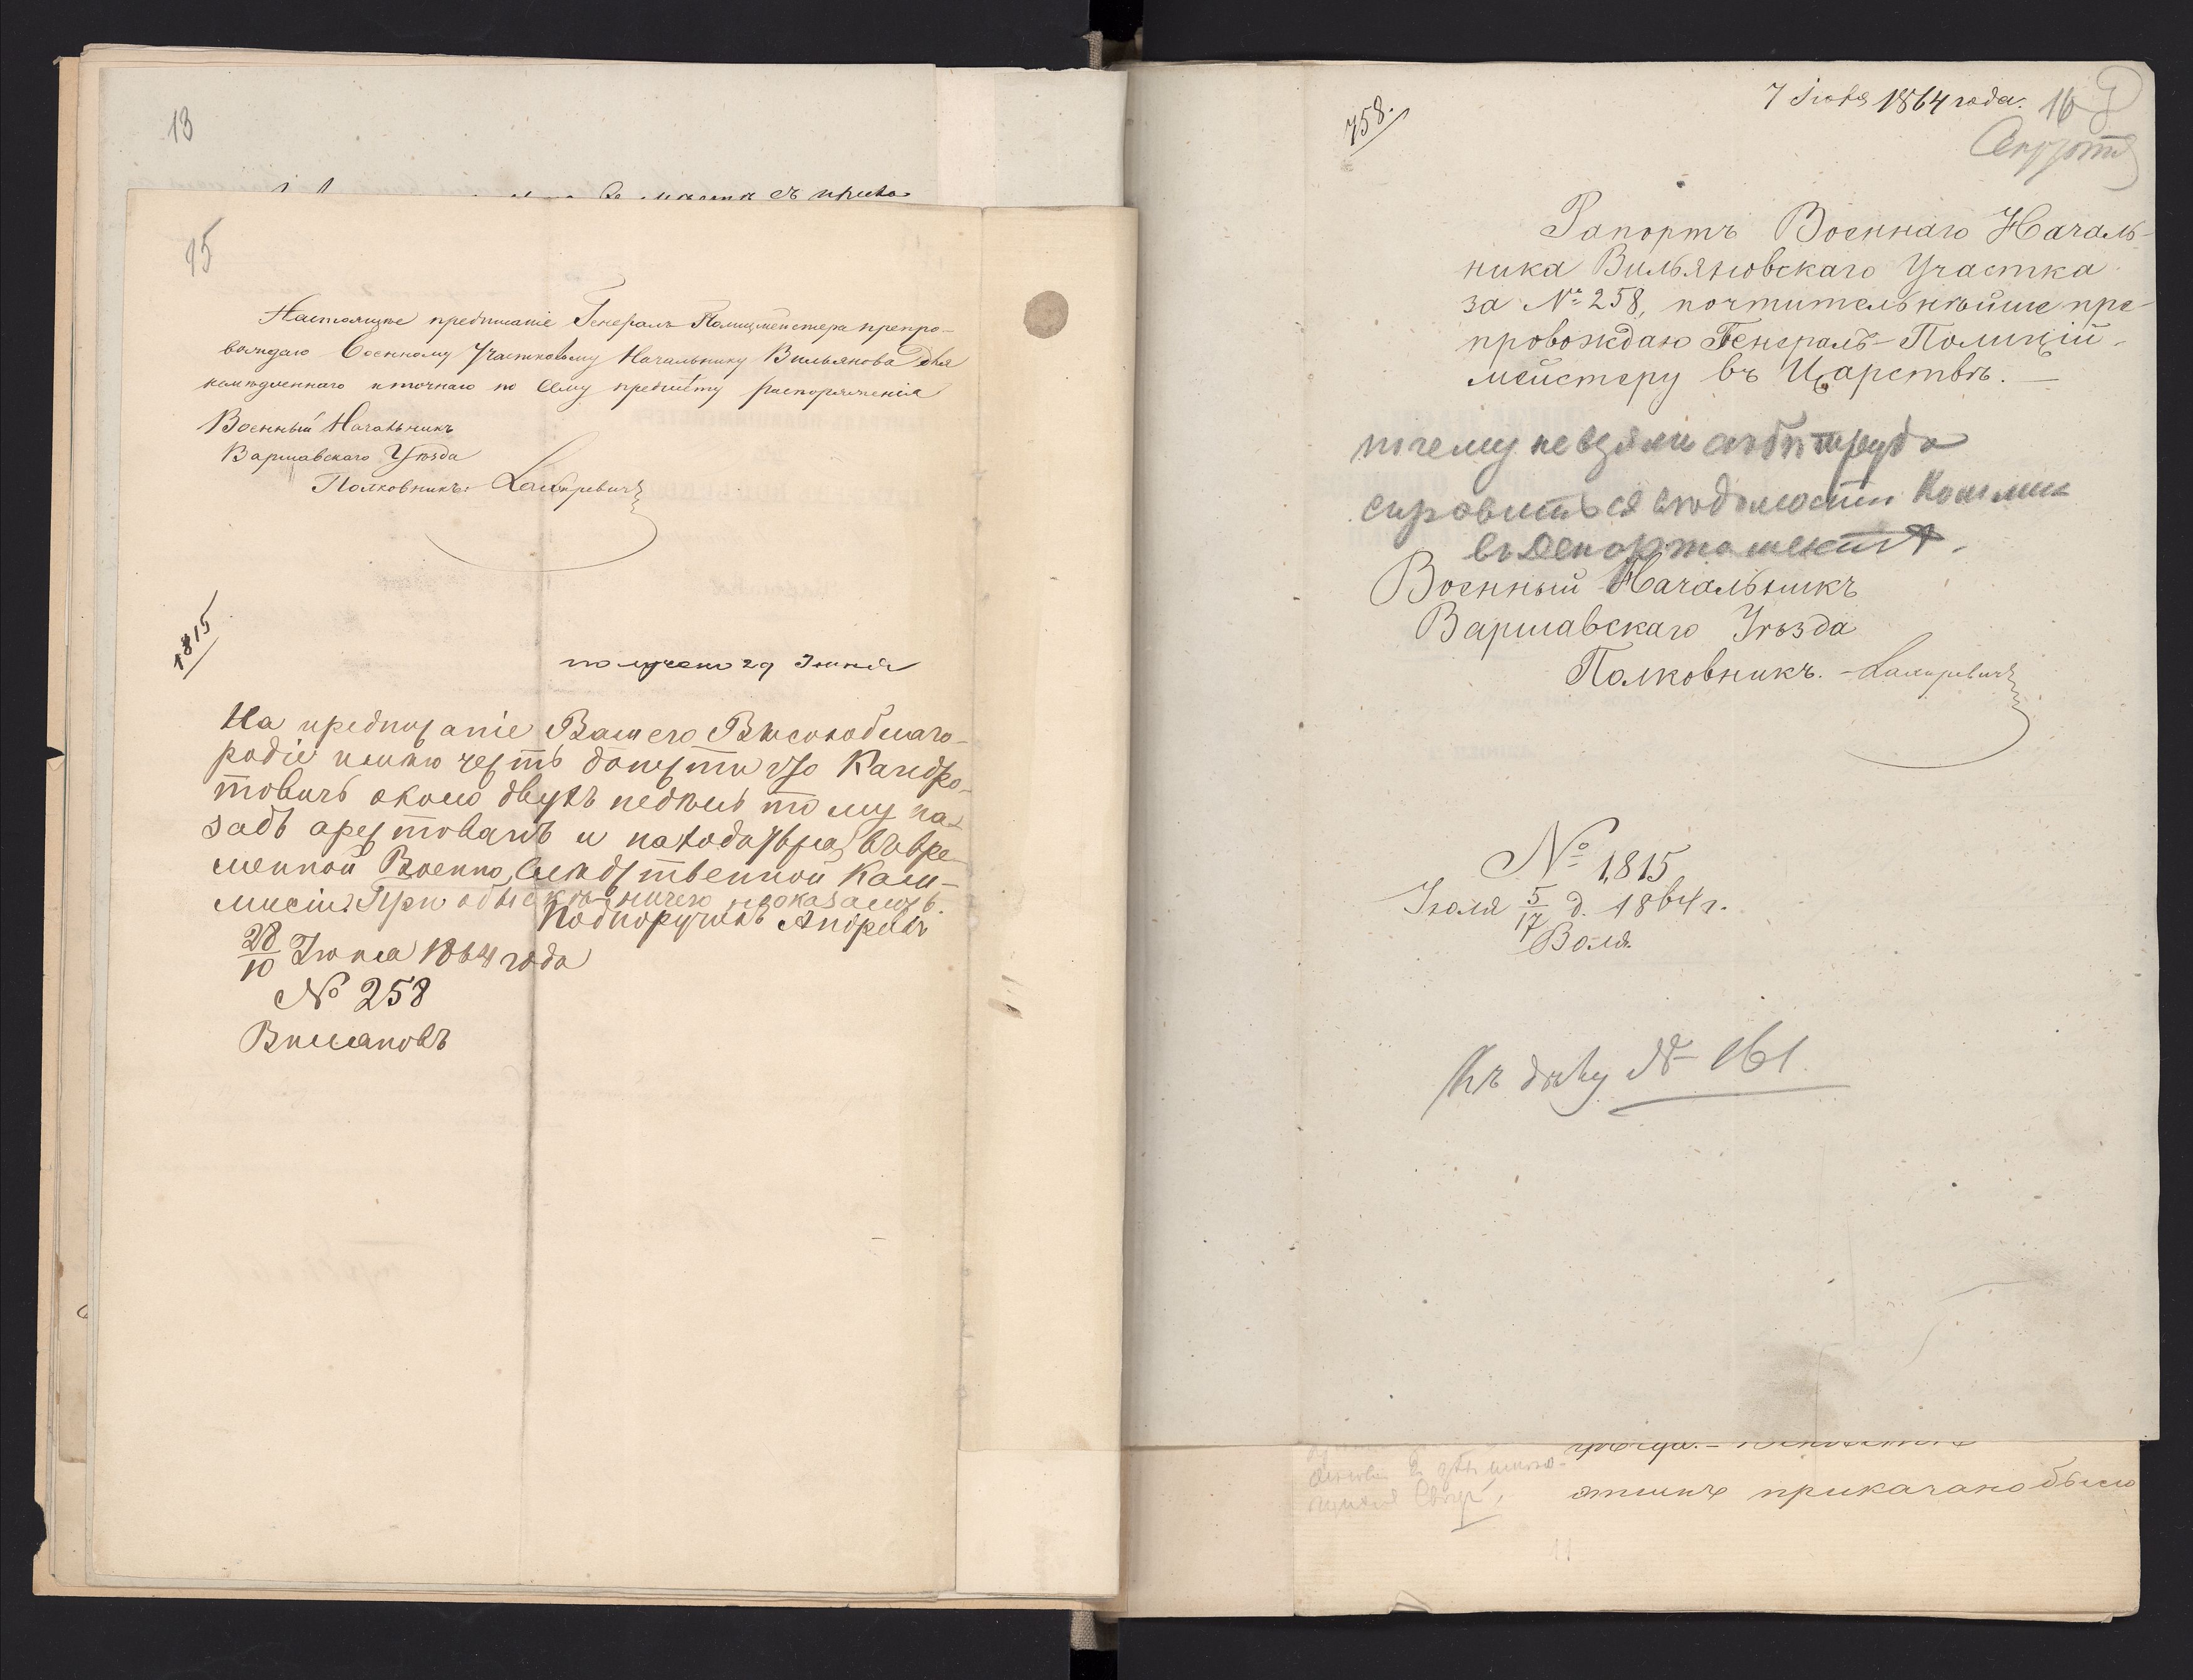 13
15
Настоящее предписаніе Генералъ-Полицмейстера препро-
вождаю Военному Участковому Начальнику Вильянова для
немедленнаго и точнаго по сему предмету распоряженія
Военный Начальникъ
Варшавскаго Уѣзда
Полковникъ
1815
получено 29 Іюня
На предписаніе Вашего Высокоблаго-
родіе имѣю честь донести что
около двухъ недѣль тому на-
задъ арестованъ и находится въ вре-
менной Военно Слѣдственной Ком-
мисіи. При обыскѣ ничего не оказалось.
Подпоручикъ Андреевъ
28/10 Іюня 1864 года
№ 258
Вилановъ
758.
7 Іюля 1864 года. 16
Рапортъ Военнаго Началь-
ника Вильяновскаго Участка
за № 258, почтительнѣйше пре-
провождаю Генералъ-Полицій-
мейстеру въ Царствѣ.
почему не взяли себѣ труда
справиться
въ Департаментѣ.
Военный Начальникъ
Варшавскаго Уѣзда
Полковникъ.
№ 1,815
Іюля 5/17 д. 1864 г.
Воля.
Къ дѣлу № 161
приказано было